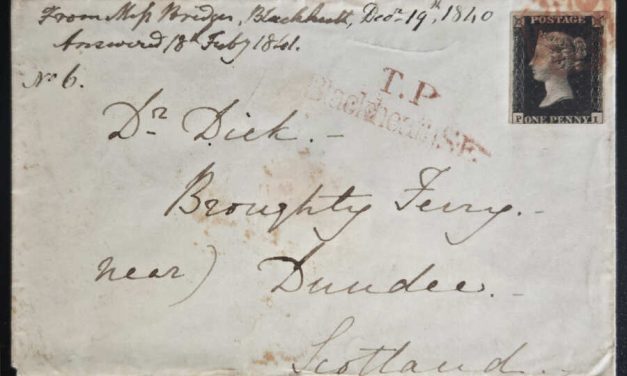 From Miss Bridges, Blackheath, Decr. 19th, 1840
Answered 18th Feby 1841.
No 6.
POSTAGE
P ONE PENNY I
T.P
Blackheath S.E.
Dr Dick.-
Broughty Ferry.-
near) Dundee.-
Scotland.-